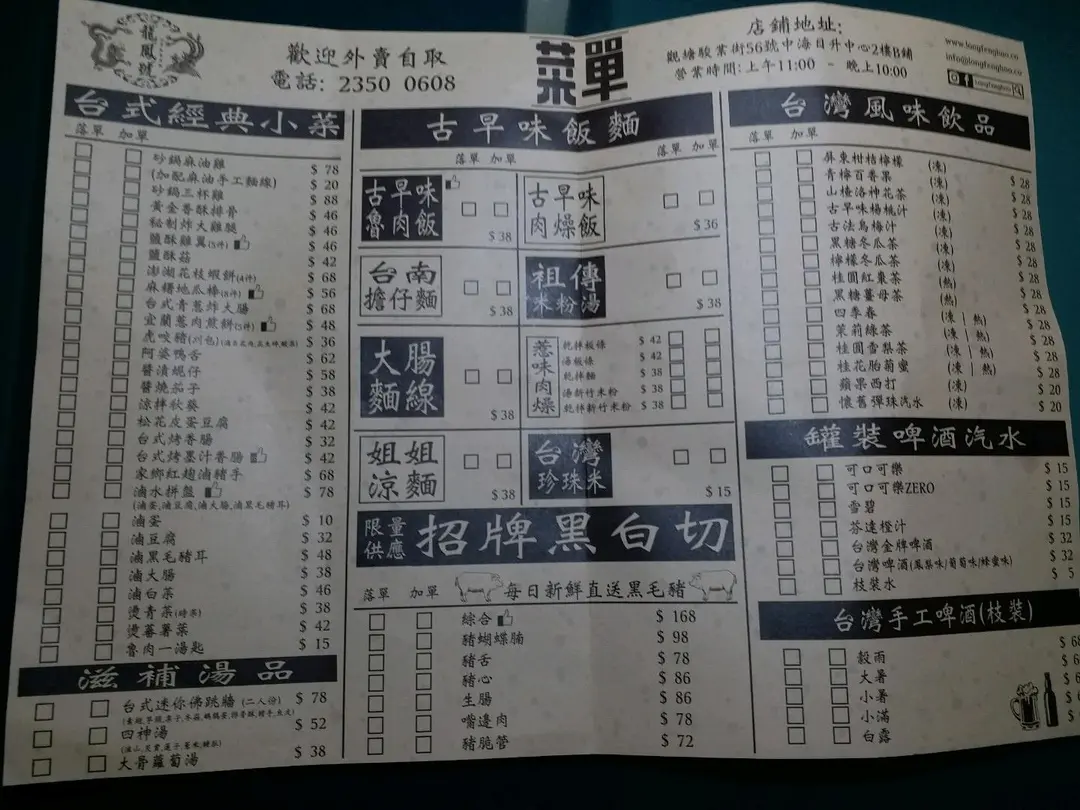 龍鳳號
歡迎外賣自取
電話: 2350 0608
菜單
店鋪地址:
觀塘駿業街56號中海日升中心2樓B鋪
營業時間: 上午11:00 - 晚上10:00
www.longfenghao.co
info@longfenghao.co
longfenghao
台式經典小菜
落單 加單
砂鍋麻油雞 $ 78
(加配麻油手工麵線) $ 20
砂鍋三杯雞 $ 88
黃金香酥排骨 $ 46
秘制炸大雞腿 $ 46
鹽酥雞翼(5件) $ 46
鹽酥菇 $ 42
澎湖花枝蝦餅(4件) $ 68
麻糬地瓜棒(8件) $ 56
台式青蔥炸大腸 $ 68
宜蘭蔥肉煎餅(3件) $ 48
虎咬豬(刈包) $ 36
阿婆鴨舌 $ 62
醬漬蜆仔 $ 58
醬燒茄子 $ 38
涼拌秋葵 $ 42
松花皮蛋豆腐 $ 42
台式烤香腸 $ 32
台式烤墨汁香腸 $ 42
家鄉紅麴滷豬手 $ 68
滷水拼盤 $ 78
(滷蛋,滷豆腐,滷大腸,滷黑毛豬耳)
滷蛋 $ 10
滷豆腐 $ 32
滷黑毛豬耳 $ 48
滷大腸 $ 38
滷白菜 $ 46
燙青菜(時菜) $ 38
燙蕃薯菜 $ 42
魯肉一湯匙 $ 15
滋補湯品
台式迷你佛跳牆 (二人份) $ 78
四神湯 $ 52
大骨蘿蔔湯 $ 38
古早味飯麵
落單 加單
落單 加單
古早味魯肉飯 $ 38
古早味肉燥飯 $ 36
台南擔仔麵 $ 38
祖傳米粉湯 $ 38
大腸麵線 $ 38
惹味肉燥
乾拌板條 $ 42
湯板條 $ 42
乾拌麵 $ 38
湯新竹米粉 $ 38
乾拌新竹米粉 $ 38
姐姐涼麵 $ 38
台灣珍珠米 $ 15
限量供應 招牌黑白切
落單 加單 每日新鮮直送黑毛豬
綜合 $ 168
豬蝴蝶腩 $ 98
豬舌 $ 78
豬心 $ 86
生腸 $ 86
嘴邊肉 $ 78
豬脆管 $ 72
台灣風味飲品
落單 加單
屏東柑桔檸檬 (凍) $ 28
青檸百香果 (凍) $ 28
山楂洛神花茶 (凍) $ 28
古早味楊桃汁 (凍) $ 28
古法烏梅汁 (凍) $ 28
黑糖冬瓜茶 (凍) $ 28
檸檬冬瓜茶 (凍) $ 28
桂圓紅棗茶 (熱) $ 28
黑糖薑母茶 (熱) $ 28
四季春 (凍 | 熱) $ 28
茉莉綠茶 (凍 | 熱) $ 28
桂圓雪梨茶 (凍 | 熱) $ 28
桂花胎菊蜜 (凍 | 熱) $ 28
蘋果西打 (凍) $ 20
懷舊彈珠汽水 (凍) $ 20
罐裝啤酒汽水
可口可樂 $ 15
可口可樂ZERO $ 15
雪碧 $ 15
芬達橙汁 $ 15
台灣金牌啤酒 $ 32
台灣啤酒(鳳梨味/葡萄味/蜂蜜味) $ 32
枝裝水 $ 5
台灣手工啤酒(枝裝)
穀雨 $ 68
大暑 $
小暑 $
小滿 $
白露 $